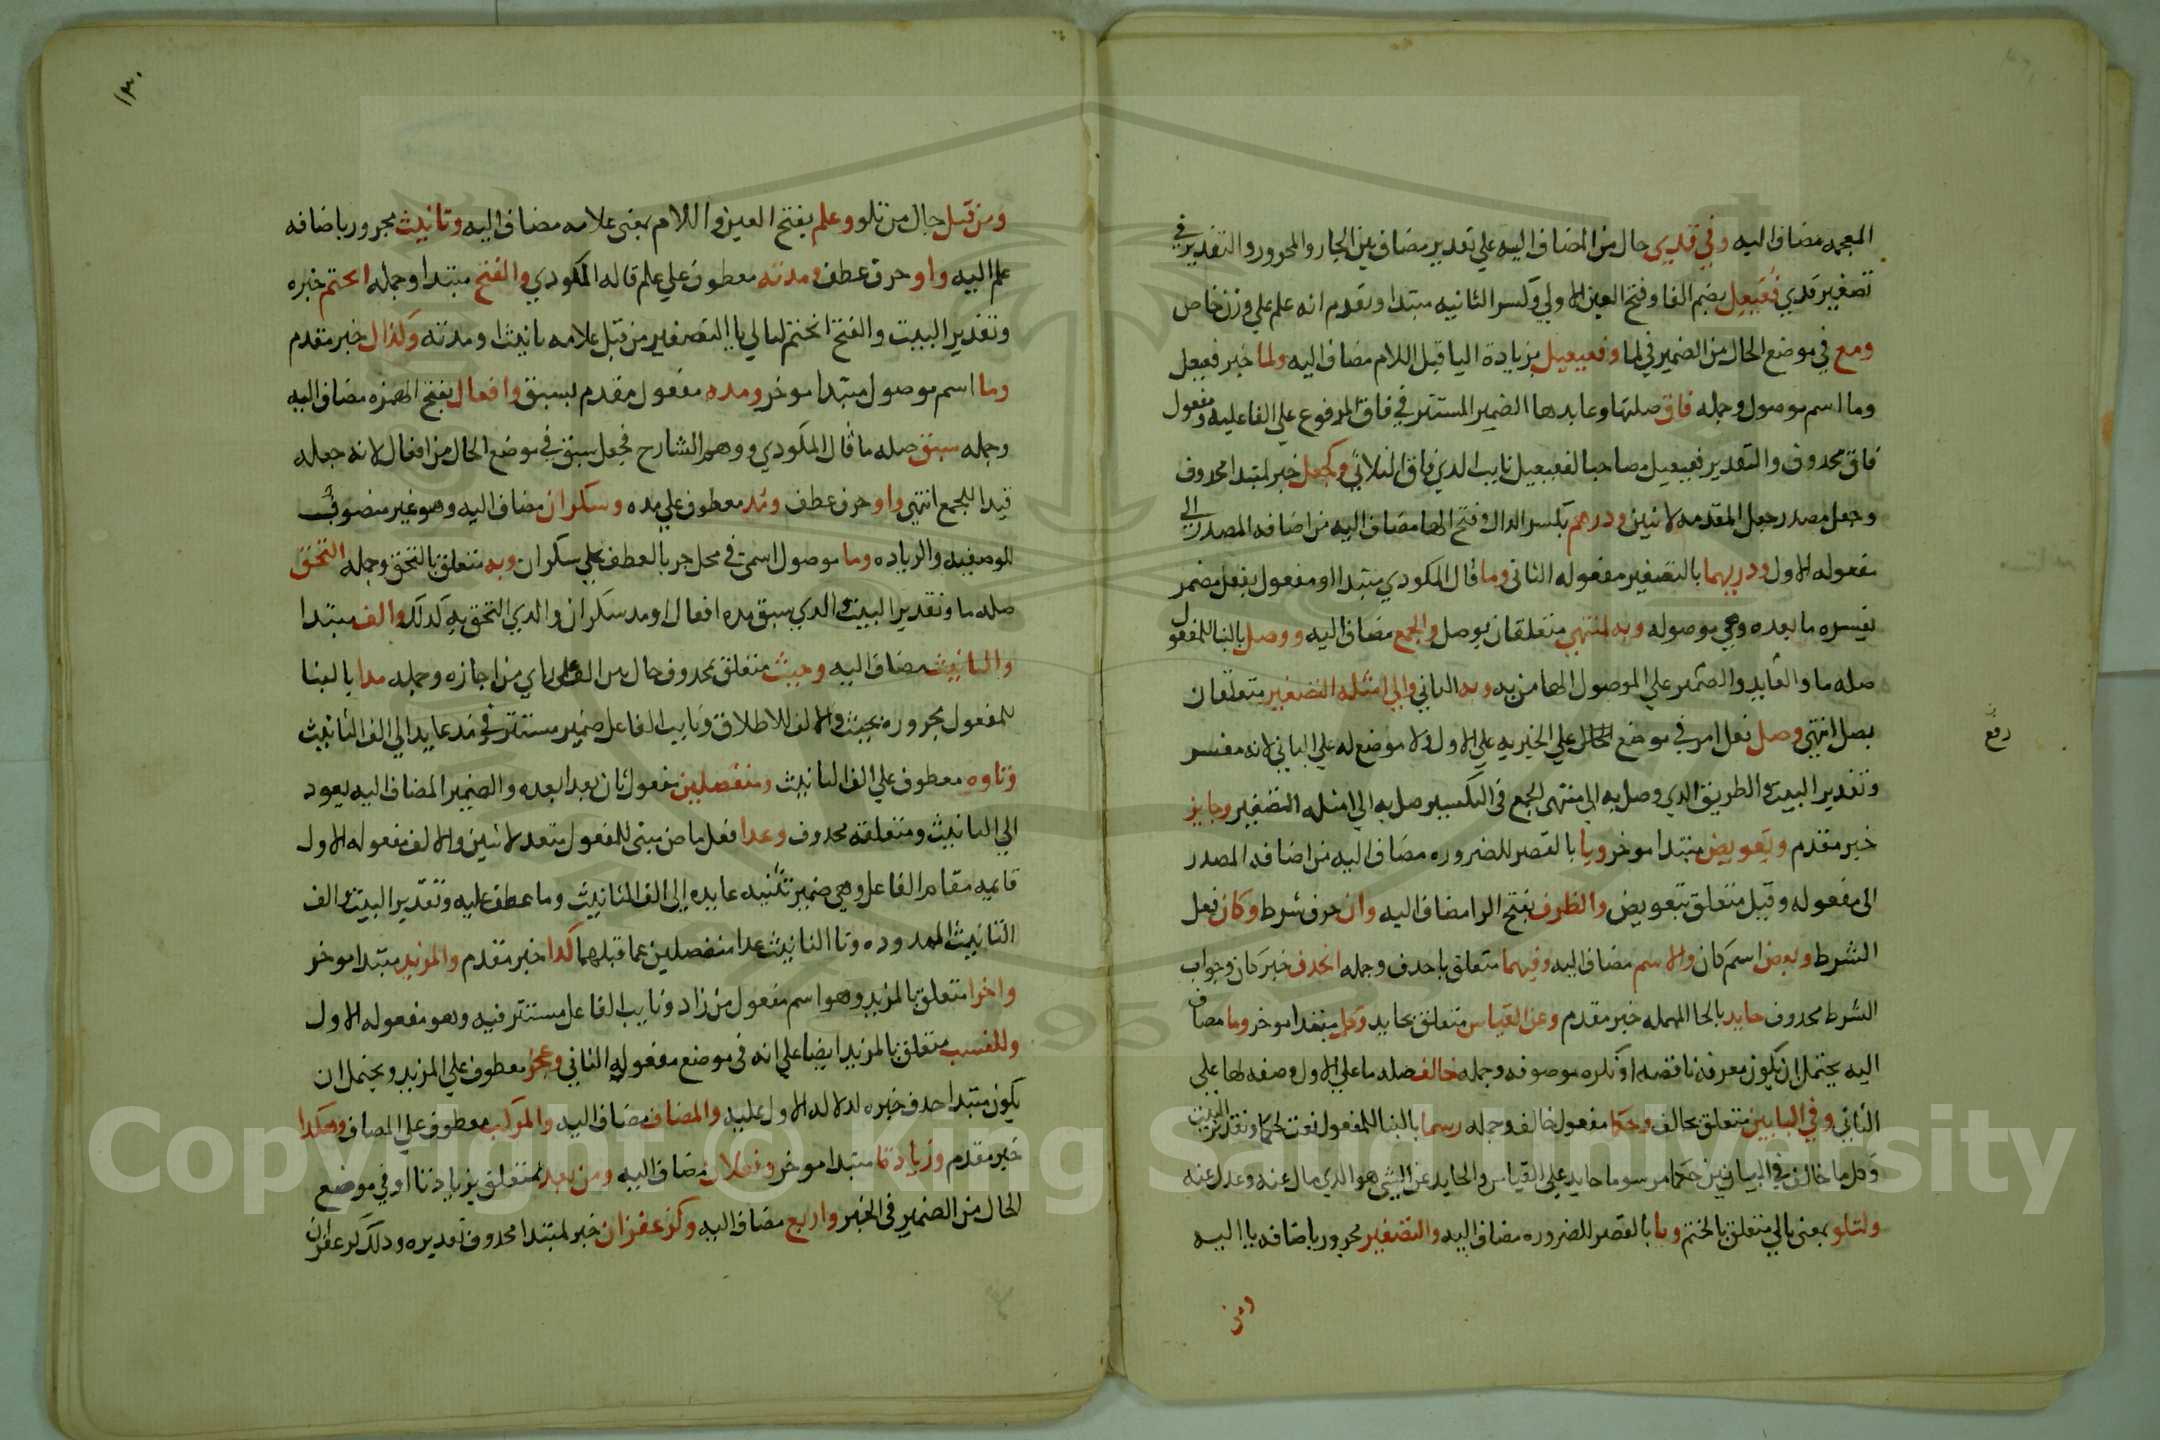 المعجمه مضاف اليه وفي قذي حال من المضاف اليه علي تقدير مضاف بين الجار والمجرور والتقدير في
تصغير قذي فُعَيعِل بضم الفا وفتح العين الاولي وكسر الثانيه مبتدا وتقدم انه علم علي وزن خاص
ومع في موضع الحال من الضمير في لما وفعيعيل بزيادة اليا قبل اللام مضاف اليه ولما خبر فعيعل
وما اسم موصول وجمله فاق صلتها وعايدها الضمير المستتر في فاق المرفوع علي الفاعليه ومفعول
فاق محذوف والتقدير فعيعيل مصاحبا لفعيعيل نايب الذي فاق الثلاثي وكجعل خبر لمبتدا محذوف
وجعل مصدر جعل المقدمه لاثنين ودرهم بكسر الدال وفتح الها مضاف اليه من اضافه المصدر الي
مفعوله الاول ودريهما بالتصغير مفعوله الثاني وما قال المكودي مبتدا او مفعول بفعل مضمر
يفسره ما بعده وهي موصوله وبه لمنتهي متعلقان بوصل والجمع مضاف اليه ووصل بالبنا للمفعول
صله ما والعايد والضمير علي الموصول الها من به وبه الثاني والي امثله التصغير متعلقان
بصل انتهي وصل فعل امر في موضع الحال علي الخبريه علي الاول ولا موضع له علي الثاني لانه مفسر
وتقدير البيت والطريق الذي وصل به الي منتهي الجمع في التكسير صل به الي امثله التصغير وجايز
خبر مقدم وتعويض مبتدا موخر ويا بالقصر للضروره مضاف اليه من اضافه المصدر
الي مفعوله وقبل متعلق بتعويض والظرف بفتح الرا مضاف اليه وان حرف شرط وكان فعل
الشرط وبعض اسم كان والاسم مضاف اليه وفيهما متعلق باحذف وجمله انحذف خبر كان وجواب
الشرط محذوف حايد بالحا المهمله خبر مقدم وعن القياس متعلق بحايد وكل مبتدا موخر وما مضاف
اليه يحتمل ان يكون معرفه ناقصه او نكره موصوفه وجمله خالف صله ما علي الاول وصفه لها علي
الثاني وفي البابين متعلق بخالف وحكما مفعول خالف وجمله رسما بالبنا للمفعول نعت لحكما وتقدير البيت
وكل ما خالف في البابين حكما مرسوما حايد علي القياس والحايد عن الشي هو الذي مال عنه وعدل عنه
ولتلو بمعني تالي متعلق بالختم ويا بالقصر للضروره مضاف اليه والتصغير مجرور باضافه يا اليه
ومن
رفع
١٣٠
ومن قبل حال من تلو وعلم بفتح العين واللام بمعني علامه مضاف اليه وتانيث مجرور باضافه
علم اليه واو حرف عطف ومدته معطوف علي علم قاله المكودي والفتح مبتدا وجمله انحتم خبره
وتقدير البيت والفتح انحتم لتالي يا التصغير من قبل علامه تانيث او مدته وكذال خبر مقدم
وما اسم موصول مبتدا موخر ومده مفعول مقدم بسبق وافعال بفتح الهمزه مضاف اليه
وجمله سبق صله ما قال المكودي ووهم الشارح فجعل سبق في موضع الحال من افعال لانه جعله
قيدا للجمع انتهي واو حرف عطف ومد معطوف علي مده وسكران مضاف اليه وهو غير منصرف
للوصفيه والزياده وما موصول اسمي في محل جر بالعطف علي سكران وبه متعلق بالتحق وجمله التحق
صله ما وتقدير البيت والذي سبق مده افعال او مد سكران والذي التحق به كذلك والف مبتدا
والتانيث مضاف اليه وحيث متعلق بمحذوف حال من الف علي راي من اجازه وجمله مدا بالبنا
للمفعول مجروره بحيث والالف للاطلاق ونايب الفاعل ضمير مستتر في مد عايد الي الف التانيث
وتاوه معطوف علي الف التانيث ومنفصلين مفعول ثان بعدا بعده والضمير المضاف اليه يعود
الي التانيث ومتعلقه محذوف وعدا فعل ماض مبني للمفعول متعد لاثنين والالف مفعوله الاول
قايمه مقام الفاعل وهي ضمير تثنيه عايده الي الف التانيث وما عطف عليه وتقدير البيت والف
التانيث الممدوده وتا التانيث عدا منفصلين عما قبلهما كذا خبر مقدم والمزيد مبتدا موخر
واخرا متعلق بالمزيد وهو اسم مفعول من زاد ونايب الفاعل مستتر فيه وهو مفعوله الاول
وللنسب متعلق بالمزيد ايضا علي انه في موضع مفعوله الثاني وعجز معطوف علي المزيد ويحتمل ان
يكون مبتدا حذف خبره لدلاله الاول عليه والمضاف مضاف اليه والمركب معطوف علي المضاف وهكذا
خبر مقدم وزيادتا مبتدا موخر وفعلان مضاف اليه ومن بعد متعلق بزيادتا او في موضع
الحال من الضمير في الخبر واربع مضاف اليه وكزعفران خبر لمبتدا محذوف تقديره وذلك كزعفران